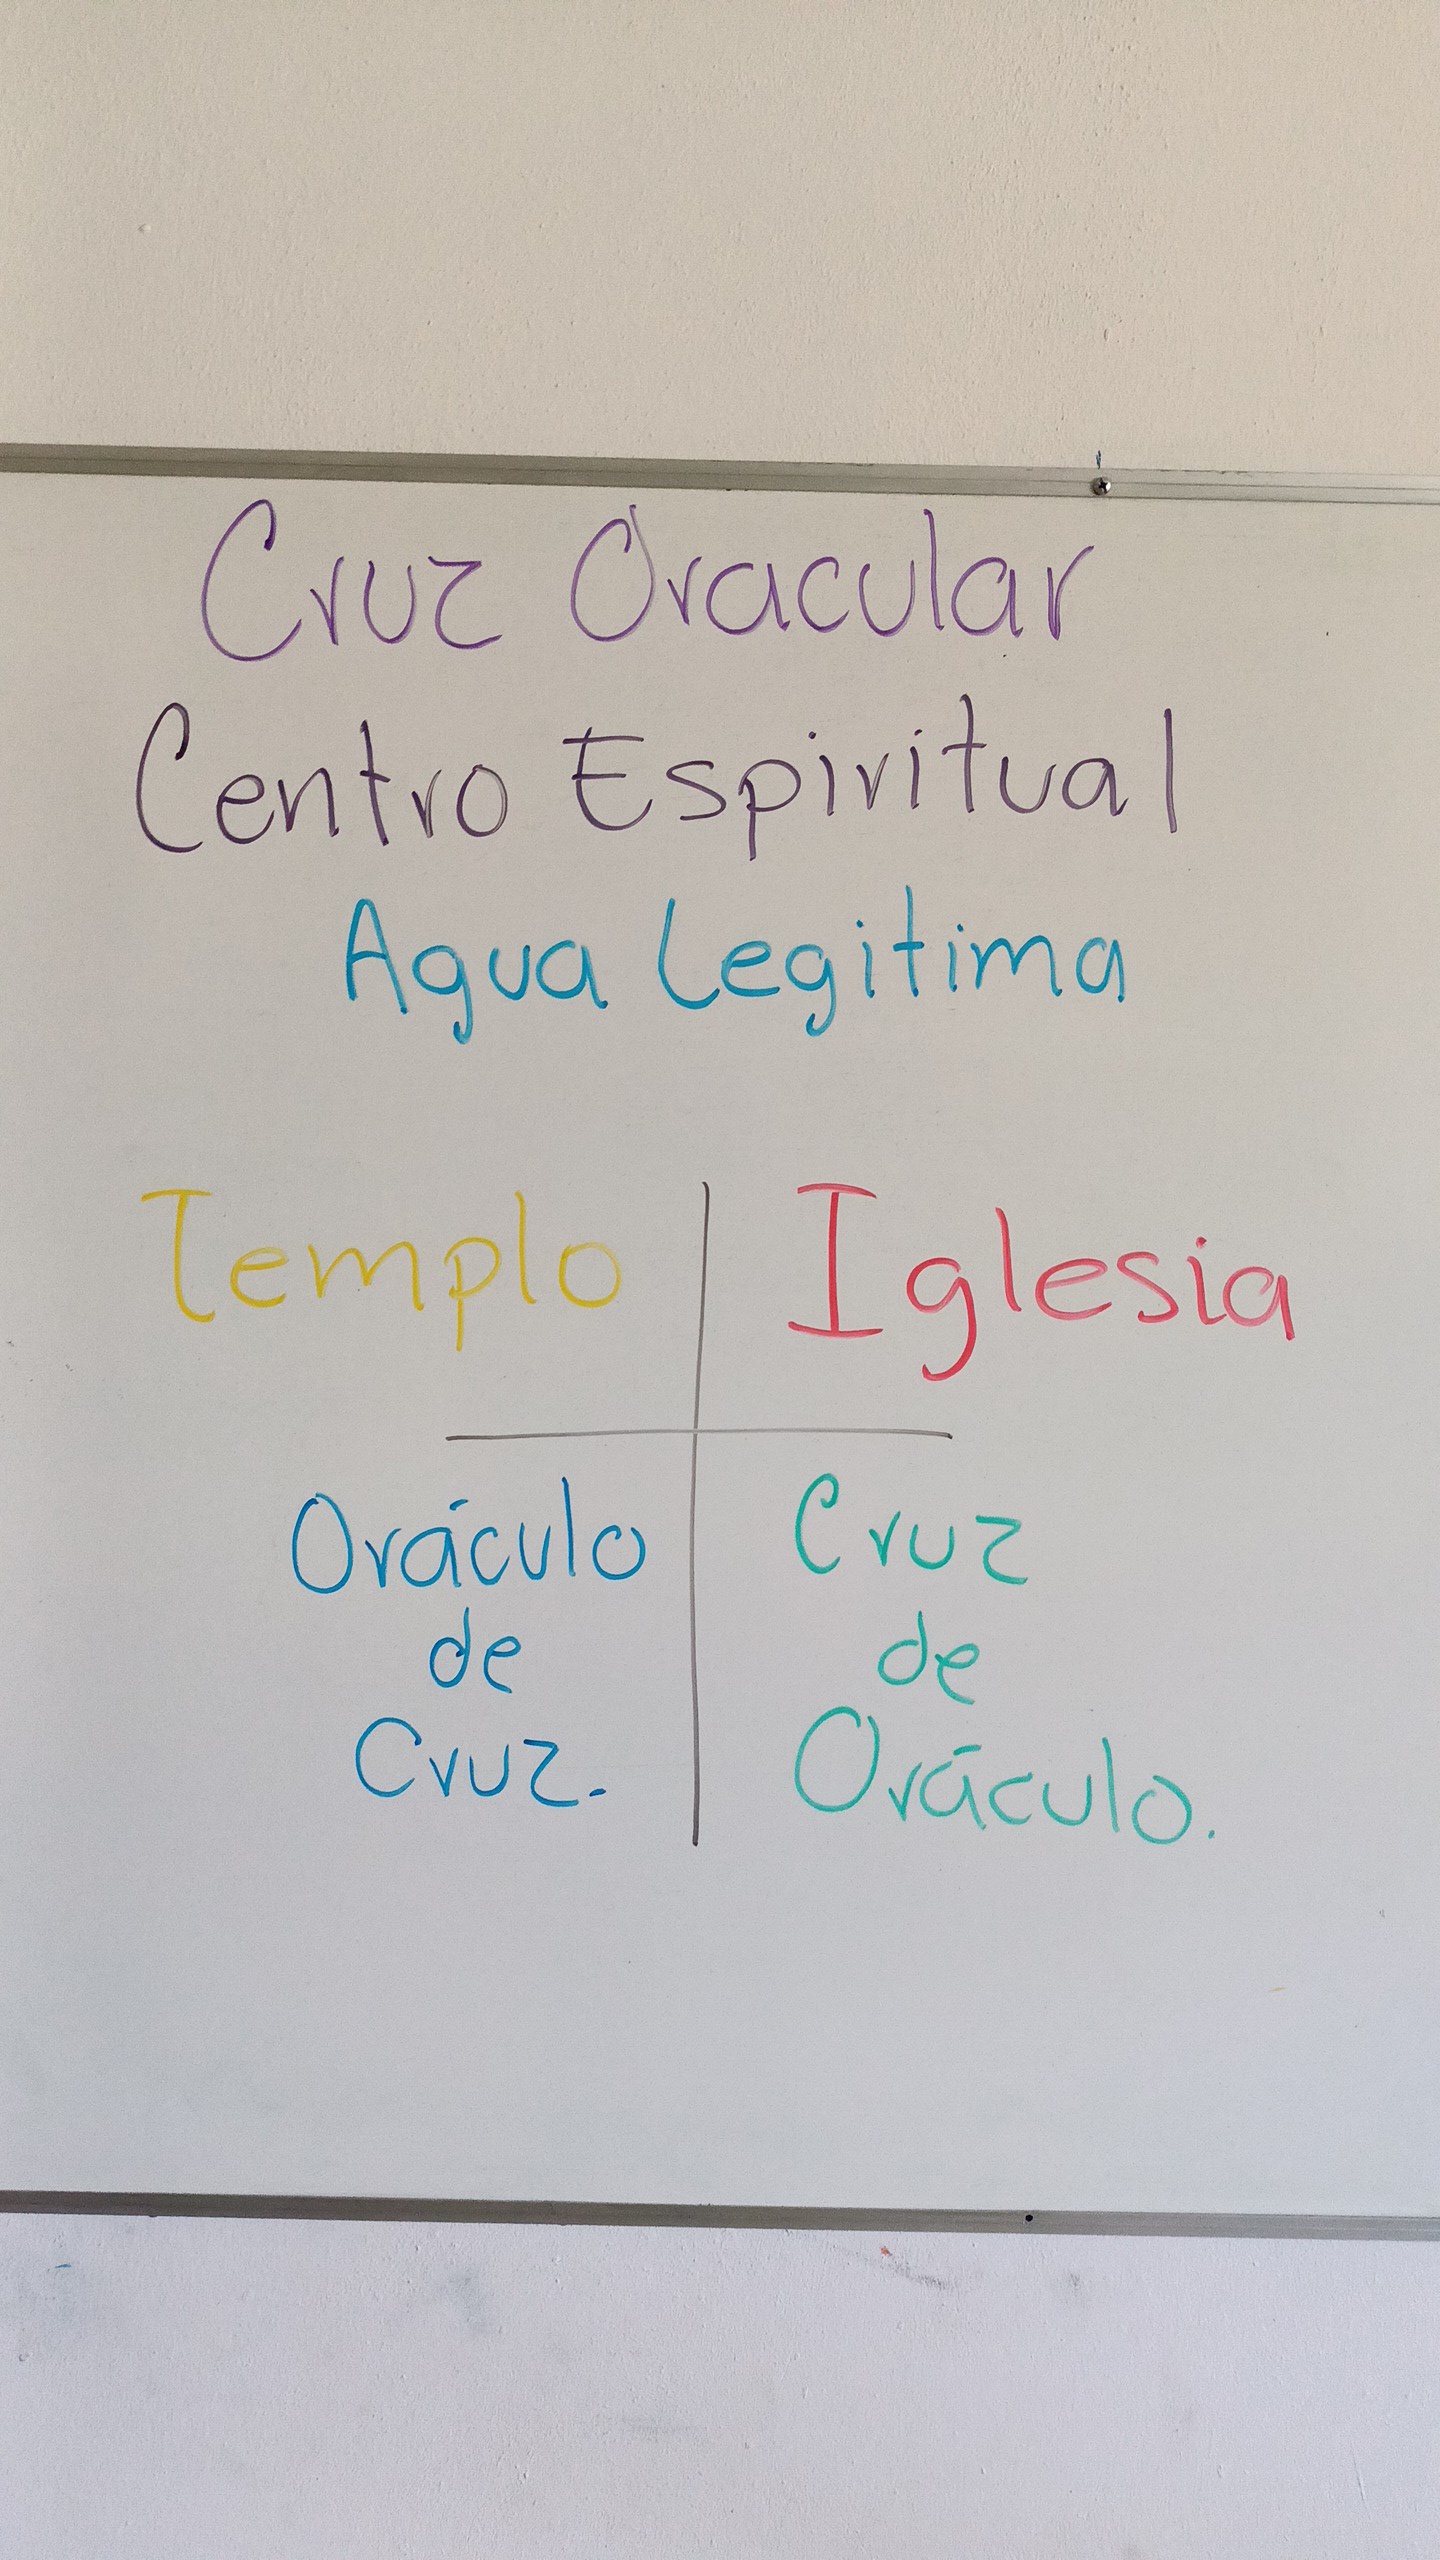 Cruz Oracular
Centro Espiritual
Agua Legitima
Templo
Iglesia
Oráculo
de
Cruz.
Cruz
de
Oráculo.